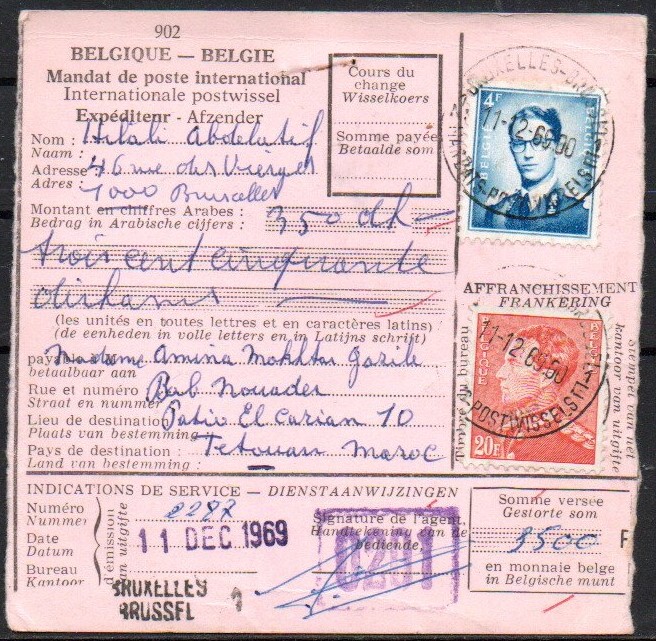 902
BELGIQUE — BELGIE
Mandat de poste international
Internationale postwissel
Expéditeur - Afzender
Cours du
change
Wisselkoers
Somme payée
Betaalde som
Nom : Hilali Abdelatif
Naam :
Adresse : 46 rue des Vierges
Adres : 1000 Bruxelles
Montant en chiffres Arabes : 350 dh —
Bedrag in Arabische cijfers :
trois cent cinquante
dirhams
(les unités en toutes lettres et en caractères latins)
(de eenheden in volle letters en in Latijns schrift)
Madame Amina Mokhtar
betaalbaar aan
Rue et numéro Bab Nouader
Straat en nummer
Lieu de destination Patio El Carian 10
Plaats van bestemming
Pays de destination : Tetouan Maroc
Land van bestemming :
BRUXELLES
11-12-69
4F
BELGIE
BELGIQUE
AFFRANCHISSEMENT
FRANKERING
Timbre du bureau
Stempel van het
kantoor van uitgifte
11-12-69
BELGIQUE
BELGIE
POSTWISSELS
20F
INDICATIONS DE SERVICE — DIENSTAANWIJZINGEN
Numéro
Nummer
Date
Datum
Bureau
Kantoor
d'émission
van uitgifte
11 DEC 1969
BRUXELLES
BRUSSEL
Signature de l'agent,
Handtekening van de
bediende,
Somme versée
Gestorte som
3500 F
en monnaie belge
in Belgische munt